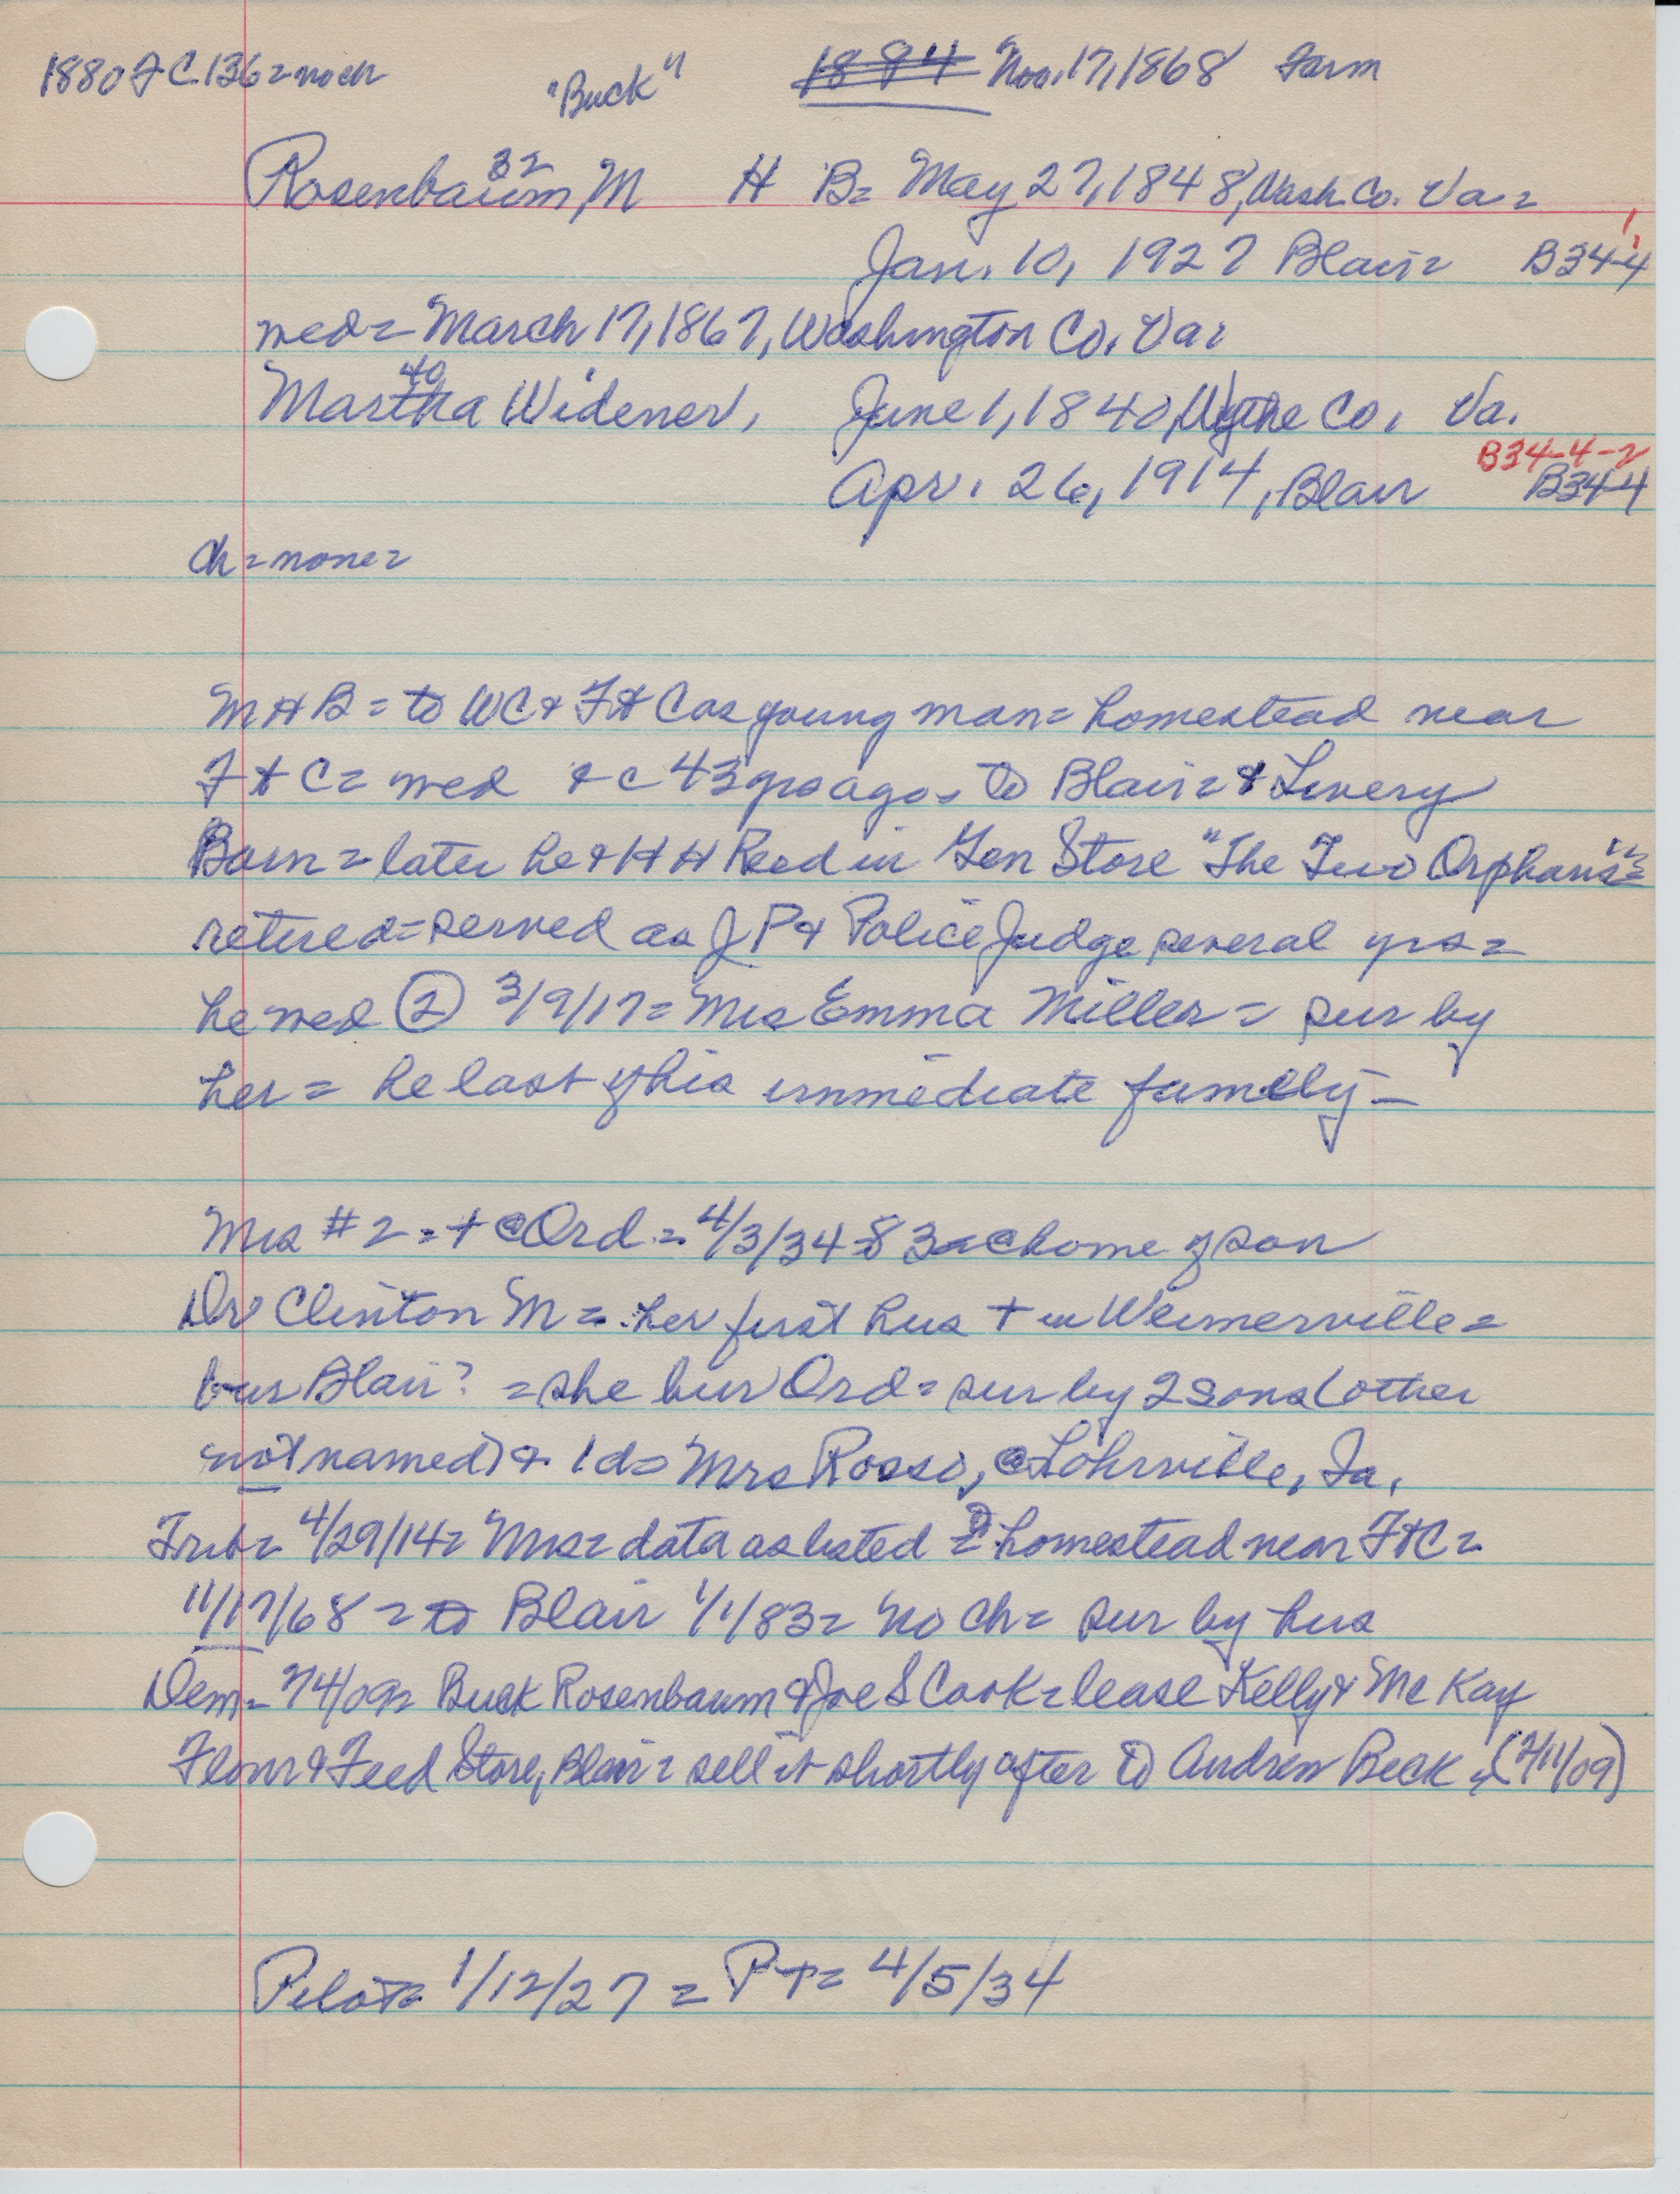 1880 Ft C. 136 = no ch
"Buck" 1884 Nov. 17, 1868 Farm
32
Rosenbaum, M H B = May 27, 1848, Wash. Co. Va =
Jan. 10, 1927 Blair = B34-4
med = March 17, 1867, Washington Co. Va =
40
Martha Widener, June 1, 1840, Wythe Co, Va.
B34-4-2
Apr. 26, 1914, Blair B34-4
Ch = none =
M H B = to WC & Ft C as young man = homestead near
Ft C = med & c 43 yrs ago = to Blair = & Livery
Barn = later he & H H Reed in Gen Store "The Two Orphans" =
retired = served as J P & Police Judge several yrs =
he med ② 3/9/17 = Mrs Emma Miller = sur by
her = he last of his immediate family -
Mrs #2 = + @ Ord = 4/3/34 - 83 = @ home of son
Dr Clinton M = her first hus + in Weimerville =
bur Blair? = she bur Ord = sur by 2 sons (other
not named) & 1 d = Mrs Rossi, @ Lohrville, Ia.
Trib = 4/29/14 = Mrs = data as listed = homestead near Ft C =
11/17/68 = to Blair 1/1/83 = no ch = sur by hus
Dem = 2/4/09 = Buck Rosenbaum & Joe S Cook = lease Kelly & McKay
Flour & Feed Store, Blair = sell it shortly after to Andrew Beck, (2/11/09)
Pilot = 1/12/27 = P T = 4/5/34